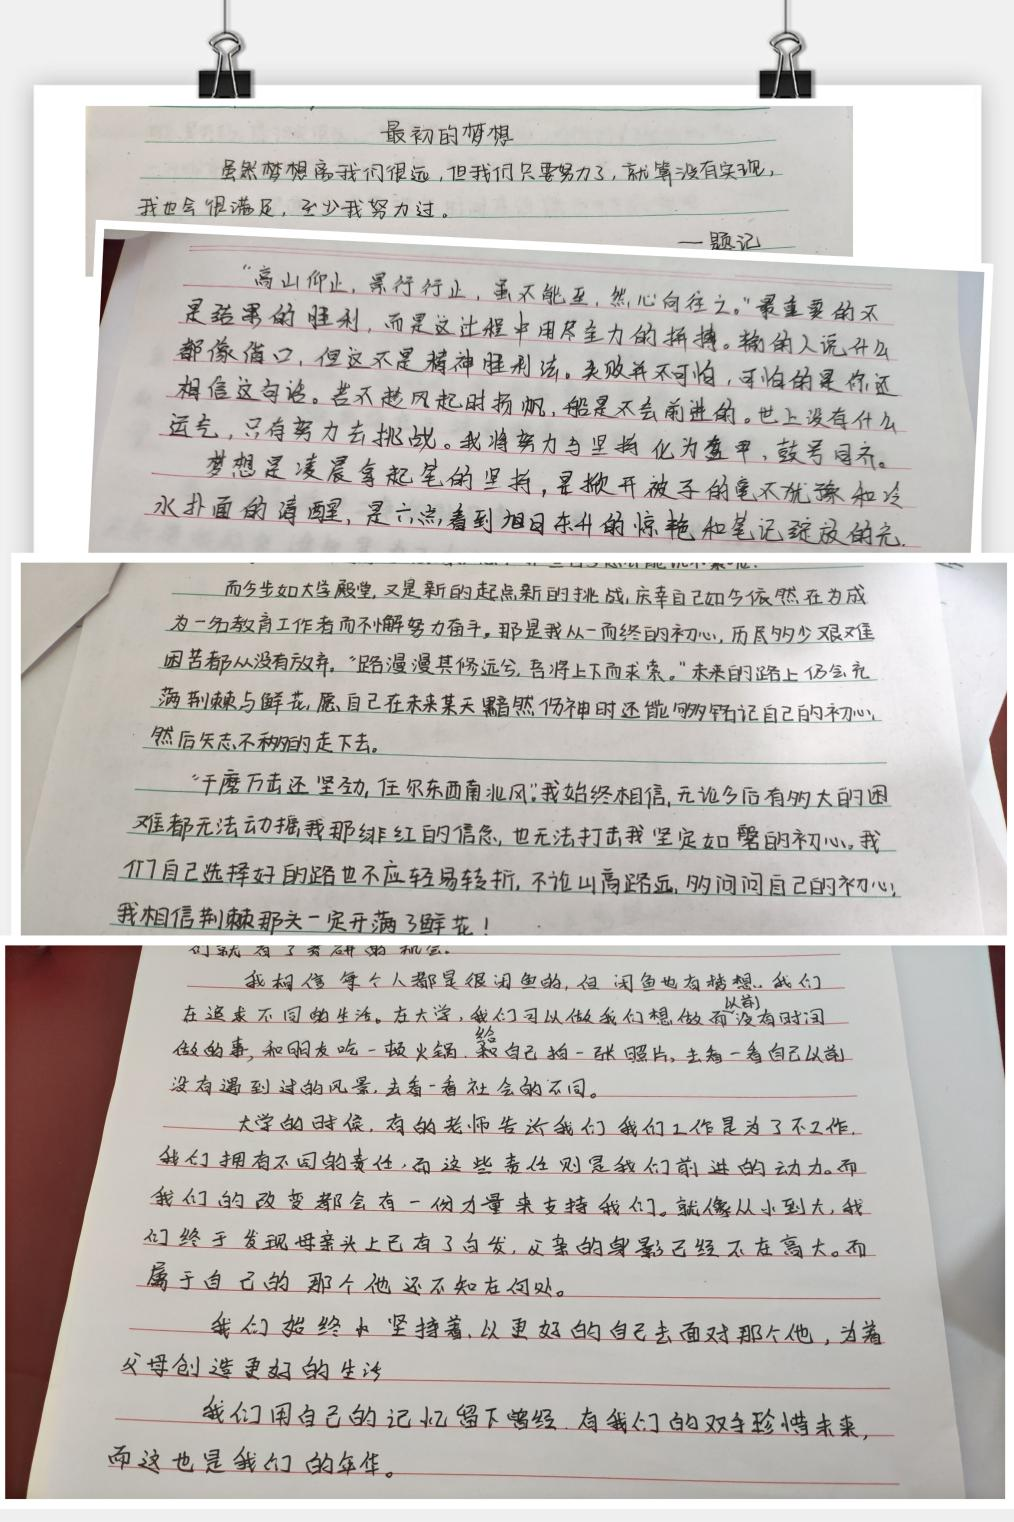 最初的梦想
虽然梦想离我们很远，但我们只要努力了，就算没有实现，
我也会很满足，至少我努力过。
—题记
“高山仰止，景行行止，虽不能至，然心向往之。”最重要的不
是结果的胜利，而是这过程中用尽全力的拼搏。输的人说什么
都像借口，但这不是精神胜利法。失败并不可怕，可怕的是你还
相信这句话。若不趁风起时扬帆，船是不会前进的。世上没有什么
运气，只有努力去挑战。我将努力与坚持化为盔甲，鼓号自齐。
梦想是凌晨拿起笔的坚持，是掀开被子的毫不犹豫和冷
水扑面的清醒，是六点看到旭日东升的惊艳和笔记绽放的元
而今步如大学殿堂，又是新的起点新的挑战，庆幸自己如今依然在为成
为一名教育工作者而不懈努力奋斗。那是我从一而终的初心，历尽多少艰难
困苦都从没有放弃。“路漫漫其修远兮，吾将上下而求索。”未来的路上仍会充
满荆棘与鲜花，愿自己在未来某天黯然伤神时还能够铭记自己的初心，
然后矢志不移的走下去。
“千磨万击还坚劲，任尔东西南北风”，我始终相信，无论今后有多大的困
难都无法动摇我那绯红的信念，也无法打击我坚定如磐的初心。我
们自己选择好的路也不应轻易转折，不论山高路远，多问问自己的初心，
我相信荆棘那头一定开满了鲜花！
们就有了考研的机会。
我相信每个人都是很闲鱼的，但闲鱼也有梦想．我们
在追求不同的生活。在大学，我们可以做我们想做而以前没有时间
做的事，和朋友吃一顿火锅．给自己拍一张照片，去看一看自己以前
没有遇到过的风景，去看一看社会的不同。
大学的时候，有的老师告诉我们我们工作是为了不工作，
我们拥有不同的责任，而这些责任则是我们前进的动力。而
我们的改变都会有一份力量来支持我们。就像从小到大，我
们终于发现母亲头上已有了白发，父亲的身影已经不在高大。而
属于自己的那个他还不知在何处。
我们始终坚持着，以更好的自己去面对那个他，为着
父母创造更好的生活
我们用自己的记忆留下曾经．有我们的双手珍惜未来，
而这也是我们的年华。